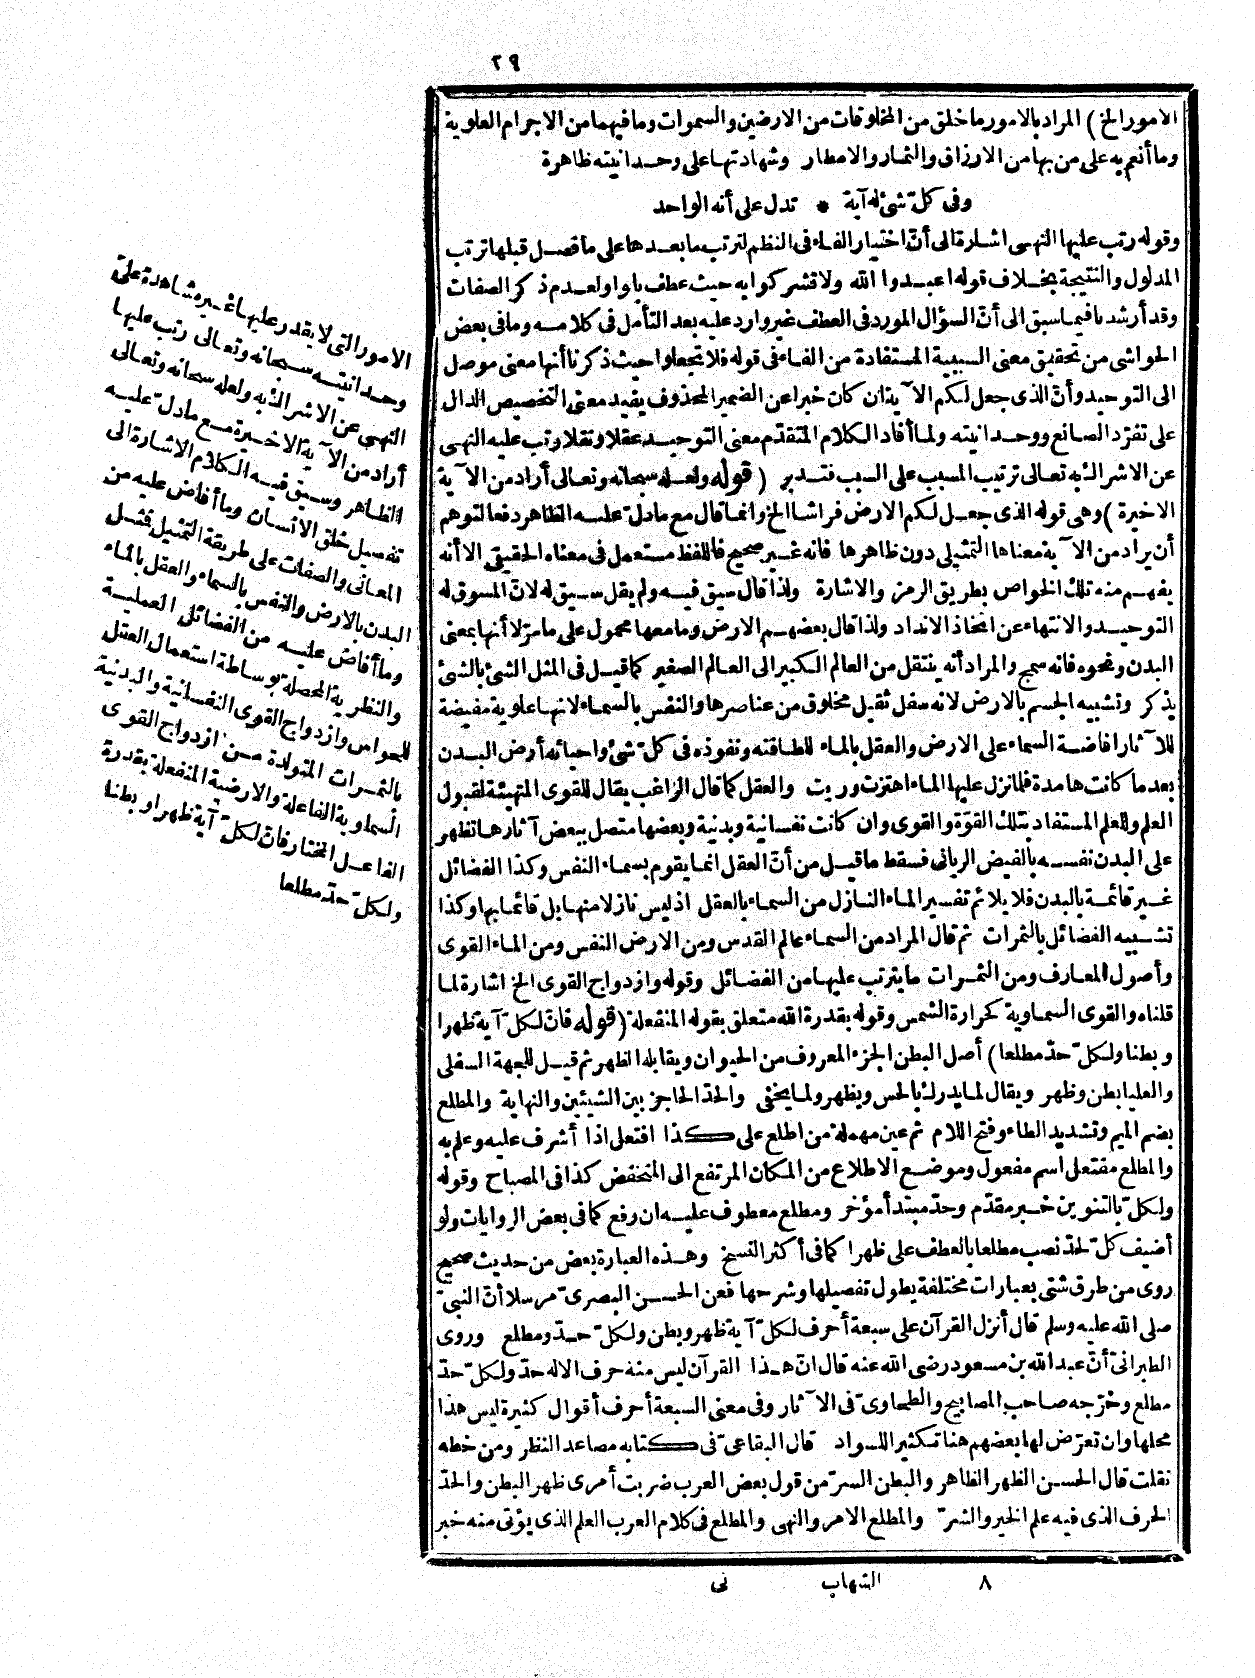 ٢٩
الامور الخ ) المراد بالامور ما خلق من المخلوقات من الارضين والسموات وما فيهما من الاجرام العلوية
وما أنعم به على من بها من الارزاق والثمار والامطار وشهادتها على وحدانيته ظاهرة
وفى كل شئ له آية * تدل على أنه الواحد
وقوله رتب عليها النهى اشارة الى أنّ اختيار الفاء فى النظم لترتب ما بعدها على ما فصل قبلها ترتب
المدلول والنتيجة بخلاف قوله اعبدوا الله ولا تشركوا به حيث عطف بالواو لعدم ذكر الصفات
وقد أرشدنا فيما سبق الى أنّ السؤال المورد فى العطف غير وارد عليه بعد التأمل فى كلامه وما فى بعض
الحواشى من تحقيق معنى السببية المستفادة من الفاء فى قوله فلا تجعلوا حيث ذكرنا أنها معنى موصل
الى التوحيد وأنّ الذى جعل لكم الآية ان كان خبرا عن الضمير المحذوف يفيد معنى التخصيص الدال
على تفرّد الصانع ووحدانيته ولما أفاد الكلام المتقدّم معنى التوحيد عقلا ونقلا رتب عليه النهى
عن الاشراك به تعالى ترتيب المسبب على السبب فتدبر ( قوله ولعله سبحانه وتعالى أراد من الآية
الاخيرة ) وهى قوله الذى جعل لكم الارض فراشا الخ وانما قال مع ما دلّ عليه الظاهر دفعا لتوهم
أن يراد من الآية معناها التمثيلى دون ظاهرها فانه غير صحيح فاللفظ مستعمل فى معناه الحقيقى الا أنه
يفهم منه تلك الخواص بطريق الرمز والاشارة ولذا قال سيق فيه ولم يقل سيق له لانّ المسوق له
التوحيد والانتهاء عن اتخاذ الانداد ولذا قال بعضهم الارض وما معها محمول على ما مرّ لا أنها بمعنى
البدن ونحوه فانه سمج والمراد أنه ينتقل من العالم الكبير الى العالم الصغير كما قيل فى المثل الشئ بالشئ
يذكر وتشبيه الجسم بالارض لانه سفل ثقيل مخلوق من عناصرها والنفس بالسماء لانها علوية مفيضة
للآثار افاضة السماء على الارض والعقل بالماء للطافته ونفوذه فى كلّ شئ واحيائه أرض البدن
بعد ما كانت هامدة فلما نزل عليها الماء اهتزت وربت والعقل كما قال الراغب يقال للقوى المتهيئة لقبول
العلم وللعلم المستفاد بتلك القوّة والقوى وان كانت نفسانية وبدنية وبعضها متصل ببعض آثارها تظهر
على البدن نفسه بالفيض الربانى فسقط ما قيل من أنّ العقل انما يقوم بسماء النفس وكذا الفضائل
غير قائمة بالبدن فلا يلائم تفسير الماء النازل من السماء بالعقل اذ ليس نازلا منها بل قائما بها وكذا
تشبيه الفضائل بالثمرات ثم قال المراد من السماء عالم القدس ومن الارض النفس ومن الماء القوى
وأصول المعارف ومن الثمرات ما يترتب عليها من الفضائل وقوله وازدواج القوى الخ اشارة لما
قلناه والقوى السماوية كحرارة الشمس وقوله بقدرة الله متعلق بقوله المنفعلة ( قوله فانّ لكلّ آية ظهرا
وبطنا ولكلّ حدّ مطلعا ) أصل البطن الجزء المعروف من الحيوان ويقابله الظهر ثم قيل للجهة السفلى
والعليا بطن وظهر ويقال لما يدرك بالحس ويظهر ولما يخفى والحدّ الحاجز بين الشيئين والنهاية والمطلع
بضم الميم وتشديد الطاء وفتح اللام ثم عين مهملة من اطلع على كذا افتعل اذا أشرف عليه وعلم به
والمطلع مفتعل اسم مفعول وموضع الاطلاع من المكان المرتفع الى المنخفض كذا فى المصباح وقوله
ولكلّ بالتنوين خبر مقدّم وحدّ مبتدأ مؤخر ومطلع معطوف عليه ان رفع كما فى بعض الروايات ولو
أضيف كلّ لحدّ نصب مطلعا بالعطف على ظهرا كما فى أكثر النسخ وهذه العبارة بعض من حديث صحيح
روى من طرق شتى بعبارات مختلفة يطول تفصيلها وشرحها فعن الحسن البصرىّ مرسلا أنّ النبىّ
صلى الله عليه وسلم قال أنزل القرآن على سبعة أحرف لكلّ آية ظهر وبطن ولكلّ حدّ ومطلع وروى
الطبرانىّ أنّ عبد الله بن مسعود رضى الله عنه قال انّ هذا القرآن ليس منه حرف الا له حدّ ولكلّ حدّ
مطلع وخرّجه صاحب المصابيح والطحاوىّ فى الآثار وفى معنى السبعة أحرف أقوال كثيرة ليس هذا
محلها وان تعرّض لها بعضهم هنا تكثير السواد قال البقاعىّ فى كتابه مصاعد النظر ومن خطه
نقلت قال الحسن الظهر الظاهر والبطن السرّ من قول بعض العرب ضربت أمرى ظهر البطن والحدّ
الحرف الذى فيه علم الخير والشرّ والمطلع الامر والنهى والمطلع فى كلام العرب العلم الذى يؤتى منه خبر
الامور التى لا يقدر عليها غيره شاهدة على
وحدانيته سبحانه وتعالى رتب عليها
النهى عن الاشراك به ولعله سبحانه وتعالى
أراد من الآية الاخيرة مع ما دلّ عليه
الظاهر وسيق فيه الكلام الاشارة الى
تفصيل خلق الانسان وما أفاض عليه من
المعانى والصفات على طريقة التمثيل فمثل
البدن بالارض والنفس بالسماء والعقل بالماء
وما أفاض عليه من الفضائل العملية
والنظرية المحصلة بوساطة استعمال العقل
للحواس وازدواج القوى النفسانية والبدنية
بالثمرات المتولدة من ازدواج القوى
السماوية الفاعلة والارضية المنفعلة بقدرة
الفاعل المختار فانّ لكلّ آية ظهرا وبطنا
ولكلّ حدّ مطلعا
٨ الشهاب نى